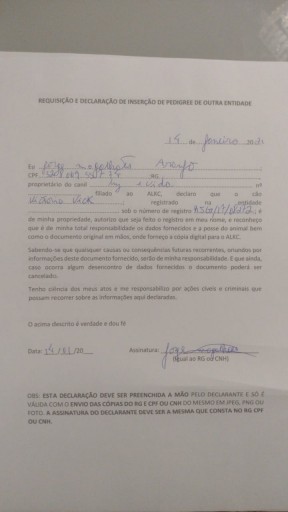 REQUISIÇÃO E DECLARAÇÃO DE INSERÇÃO DE PEDIGREE DE OUTRA ENTIDADE
14 de Janeiro
Eu Jorge Magalhães Araujo
CPF RG
proprietário do canil nº
filiado ao ALKC, declaro que o cão
registrado na entidade
, sob o número de registro e
de minha propriedade, autorizo que seja feito o registro em meu nome, e reconheço
que é de minha total responsabilidade os dados fornecidos e a posse do animal bem
como o documento original em mãos, onde forneço a cópia digital para o ALKC.
Sabendo-se que quaisquer causas ou consequências futuras recorrentes, oriundos por
informações deste documento fornecido, serão de minha responsabilidade. E que ainda,
caso ocorra algum desencontro de dados fornecidos o documento poderá ser
cancelado.
Tenho ciência dos meus atos e me responsabilizo por ações cíveis e criminais que
possam recorrer sobre as informações aqui declaradas.
O acima descrito é verdade e dou fé
Data: 14/01/20 Assinatura: Jorge Magalhães
(Igual ao RG ou CNH)
OBS: ESTA DECLARAÇÃO DEVE SER PREENCHIDA A MÃO PELO DECLARANTE E SÓ É
VÁLIDA COM O ENVIO DAS CÓPIAS DO RG E CPF OU CNH DO MESMO EM JPEG, PNG OU
FOTO. A ASSINATURA DO DECLARANTE DEVE SER A MESMA QUE CONSTA NO RG CPF
OU CNH.